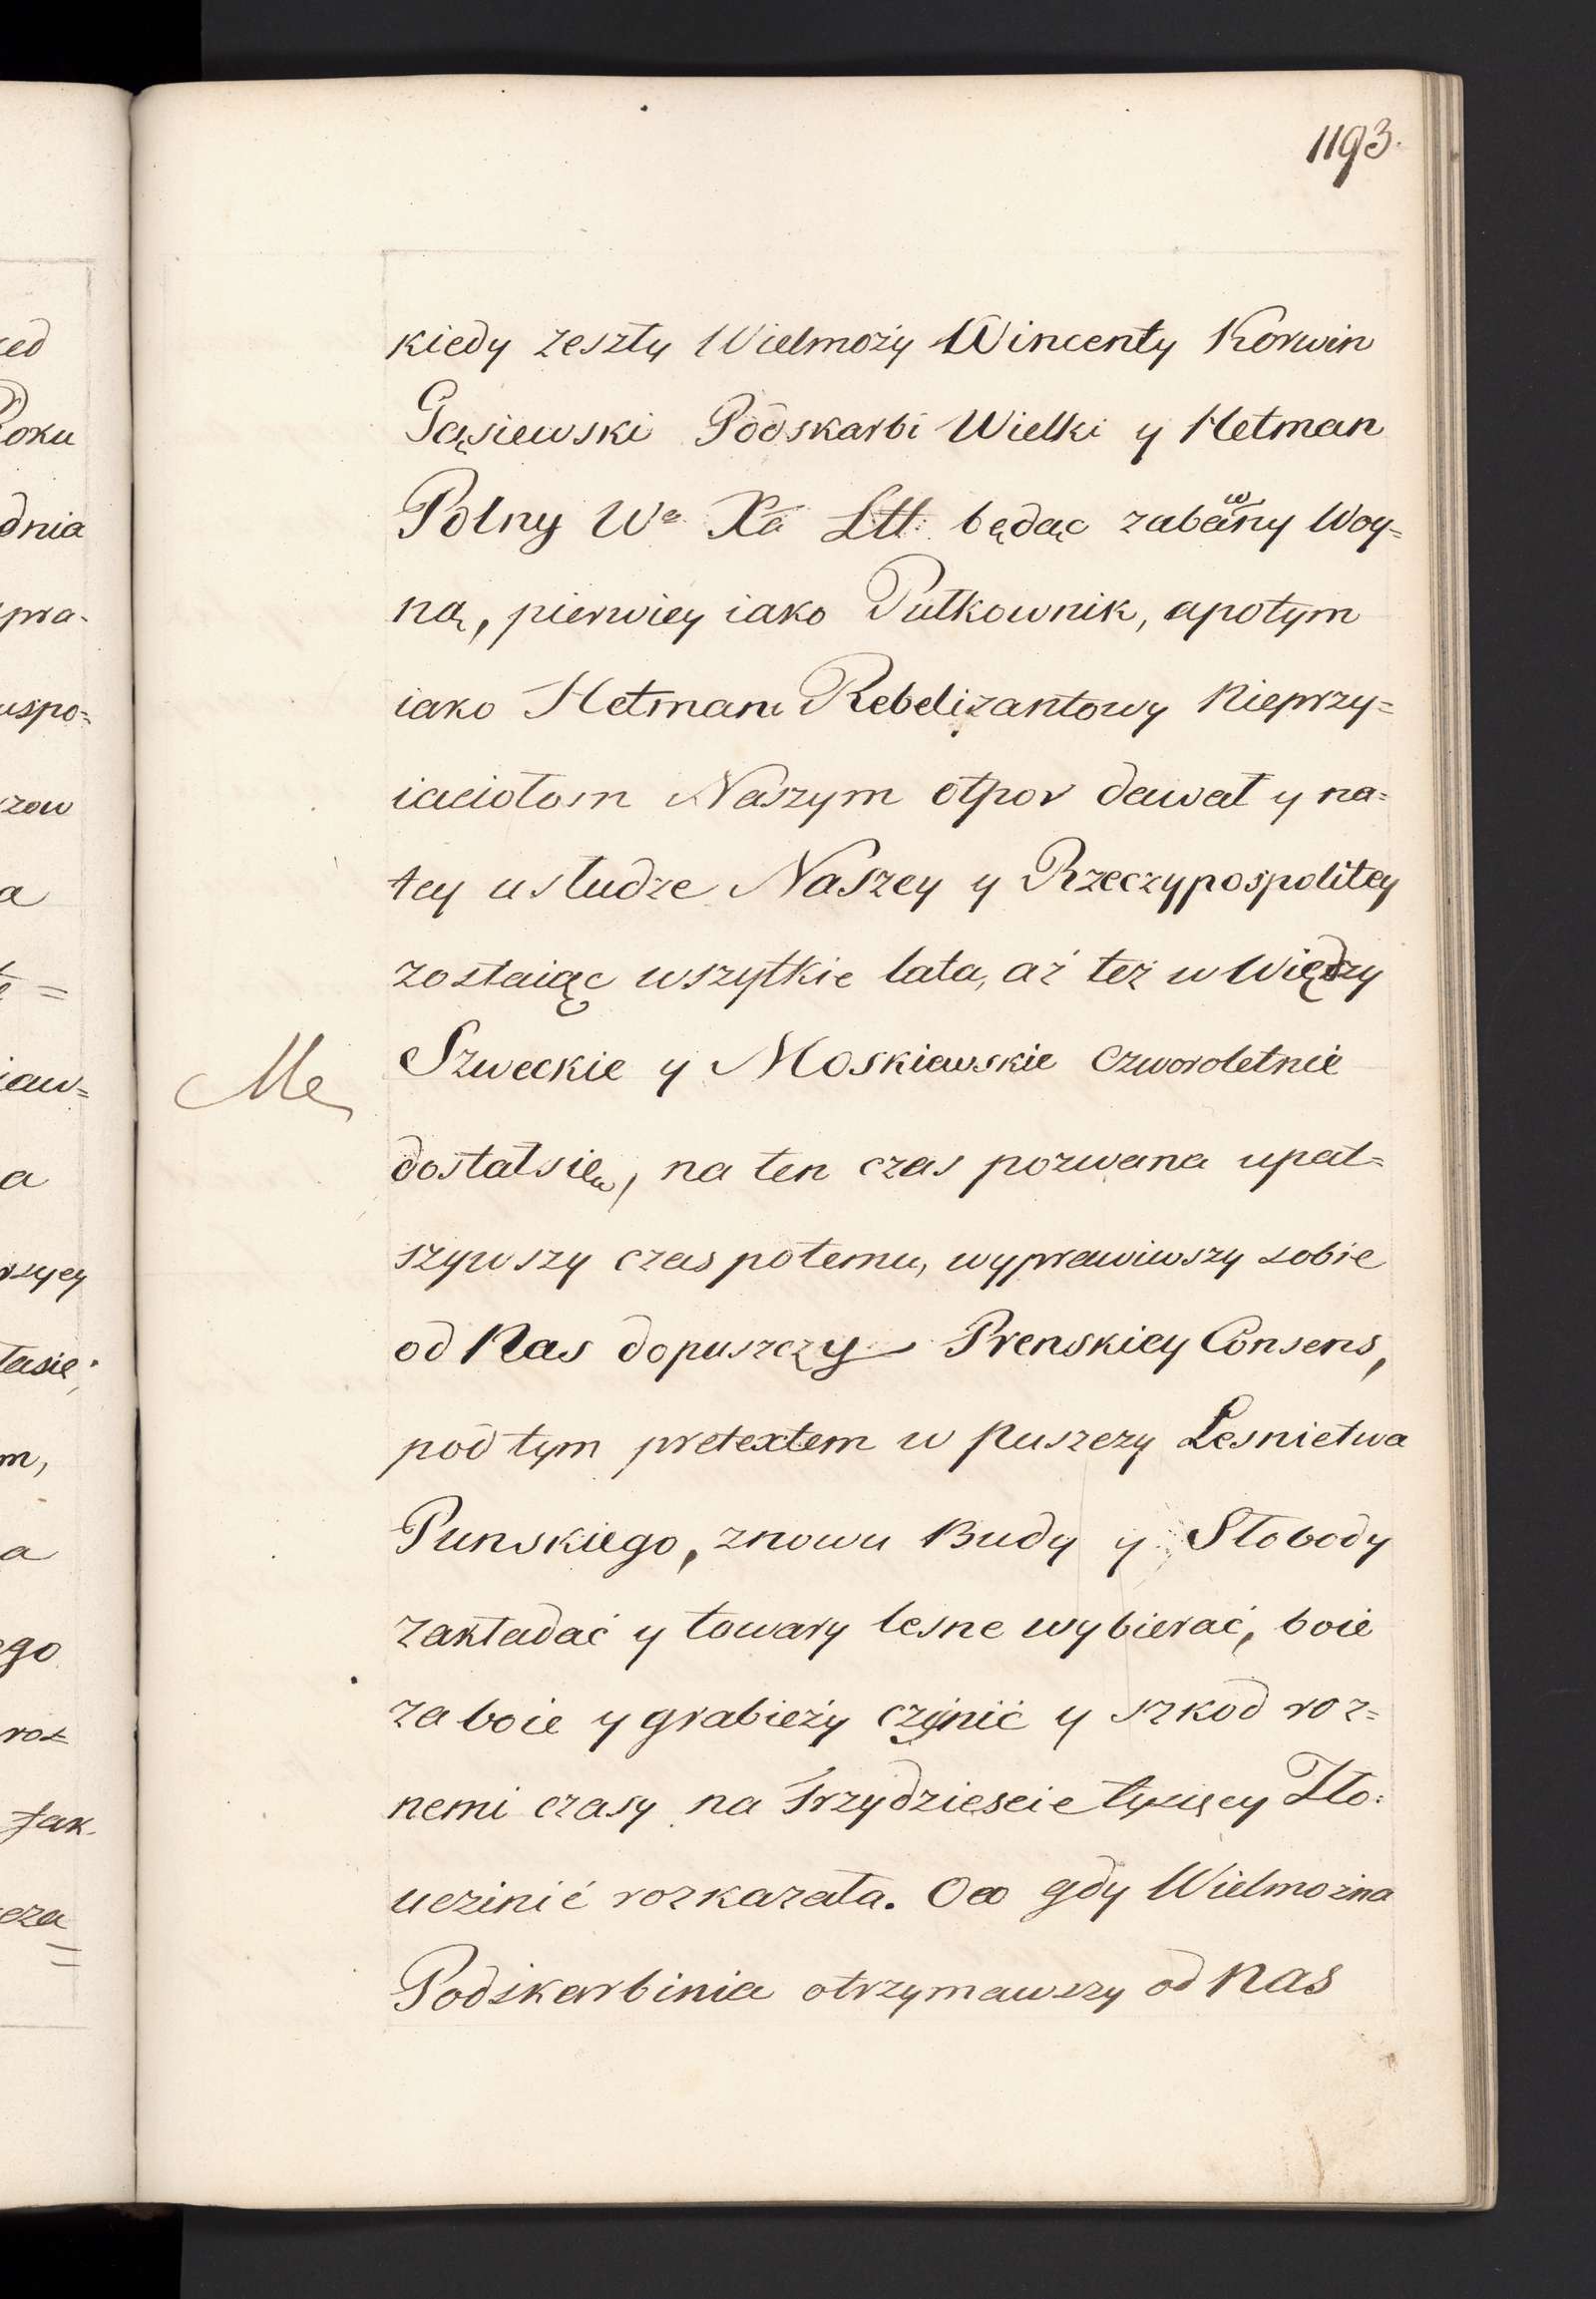 1193.
kiedy zeszły Wielmoży Wincenty Korwin
Gąsiewski Podskarbi Wielki y Hetman
Polny Wo Xa Litt: będąc zabawny Woy=
ną, pierwiey iako Pułkownik, apotym
iako Hetman Rebelizantowy Nieprzy=
iaciołom Naszym otpor dawał y na=
tey usłudze Naszey y Rzeczypospolitey
zostaiąc wszytkie lata, aż też w Więdzy
Szweckie y Moskiewskie czworoletnie
Me
dostałsię, na ten czas pozwana upat=
szywszy czas potemu, wyprawiwszy sobie
od Nas dopuszczy Prenskiey Consens,
pod tym pretextem w puszczy Lesnictwa
Punskiego, znowu Budy y Słobody
zakładać y towary lesne wybierać, boie
zaboie y grabieży czynić y szkod roz=
nemi czasy na Trzydziescie tysięcy Zło:
uczinić rozkazała. Oco gdy Wielmożna
Podskarbinia otrzymawszy od Nas
ied
Roku
dnia
pra-
uspo=
zow
a
iaw=
a
rszyey
łasię,
m,
a
ego
roz
Jak
cza=